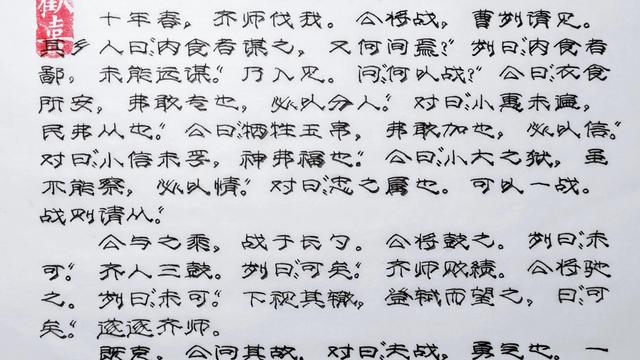 十年春，齐师伐我。公将战，曹刿请见。
其乡人曰：“肉食者谋之，又何间焉？”刿曰：“肉食者
鄙，未能远谋。”乃入见。问：“何以战？”公曰：“衣食
所安，弗敢专也，必以分人。”对曰：“小惠未遍，
民弗从也。”公曰：“牺牲玉帛，弗敢加也，必以信。”
对曰：“小信未孚，神弗福也。”公曰：“小大之狱，虽
不能察，必以情。”对曰：“忠之属也。可以一战。
战则请从。”
公与之乘，战于长勺。公将鼓之。刿曰：“未
可。”齐人三鼓。刿曰：“可矣。”齐师败绩。公将驰
之。刿曰：“未可。”下视其辙，登轼而望之，曰：“可
矣。”遂逐齐师。
既克，公问其故。对曰：“夫战，勇气也，一